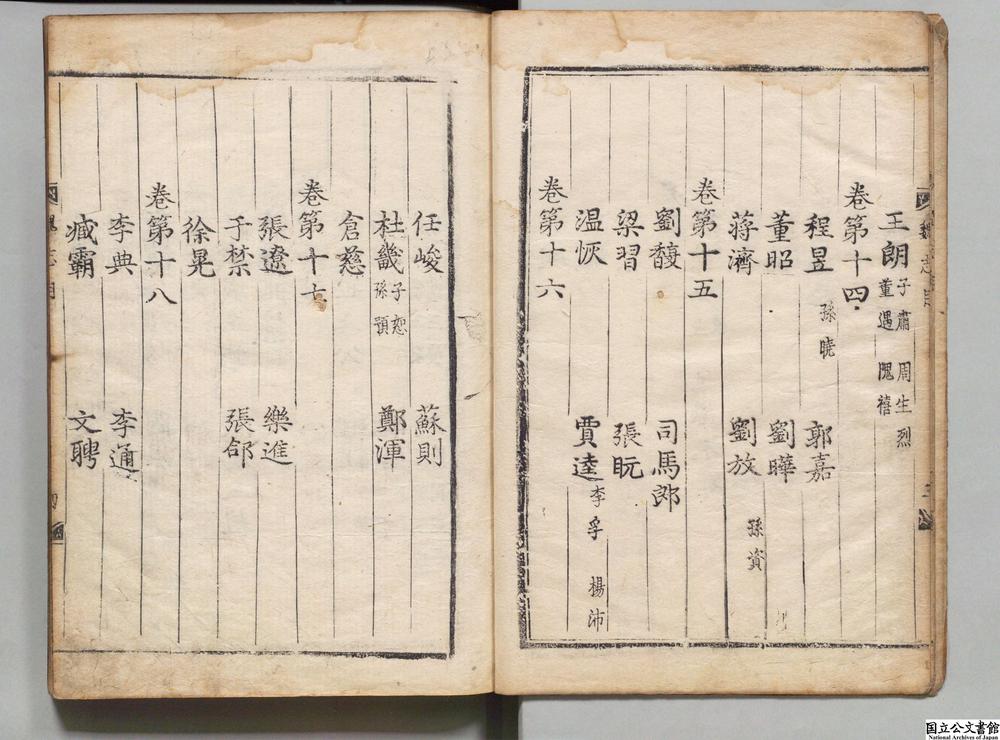 魏志目
王朗 子肅 周生烈
董遇 隗禧
卷第十四
程昱 孫曉 郭嘉
董昭 劉曄
蔣濟 劉放 孫資
卷第十五
劉馥 司馬郎
梁習 張旣
溫恢 賈逵 李孚 楊沛
卷第十六
任峻 蘇則
杜畿 子恕 鄭渾
孫預
倉慈
卷第十七
張遼 樂進
于禁 張郃
徐晃
卷第十八
李典 李通
臧霸 文聘
魏志目
国立公文書館
National Archives of Japan